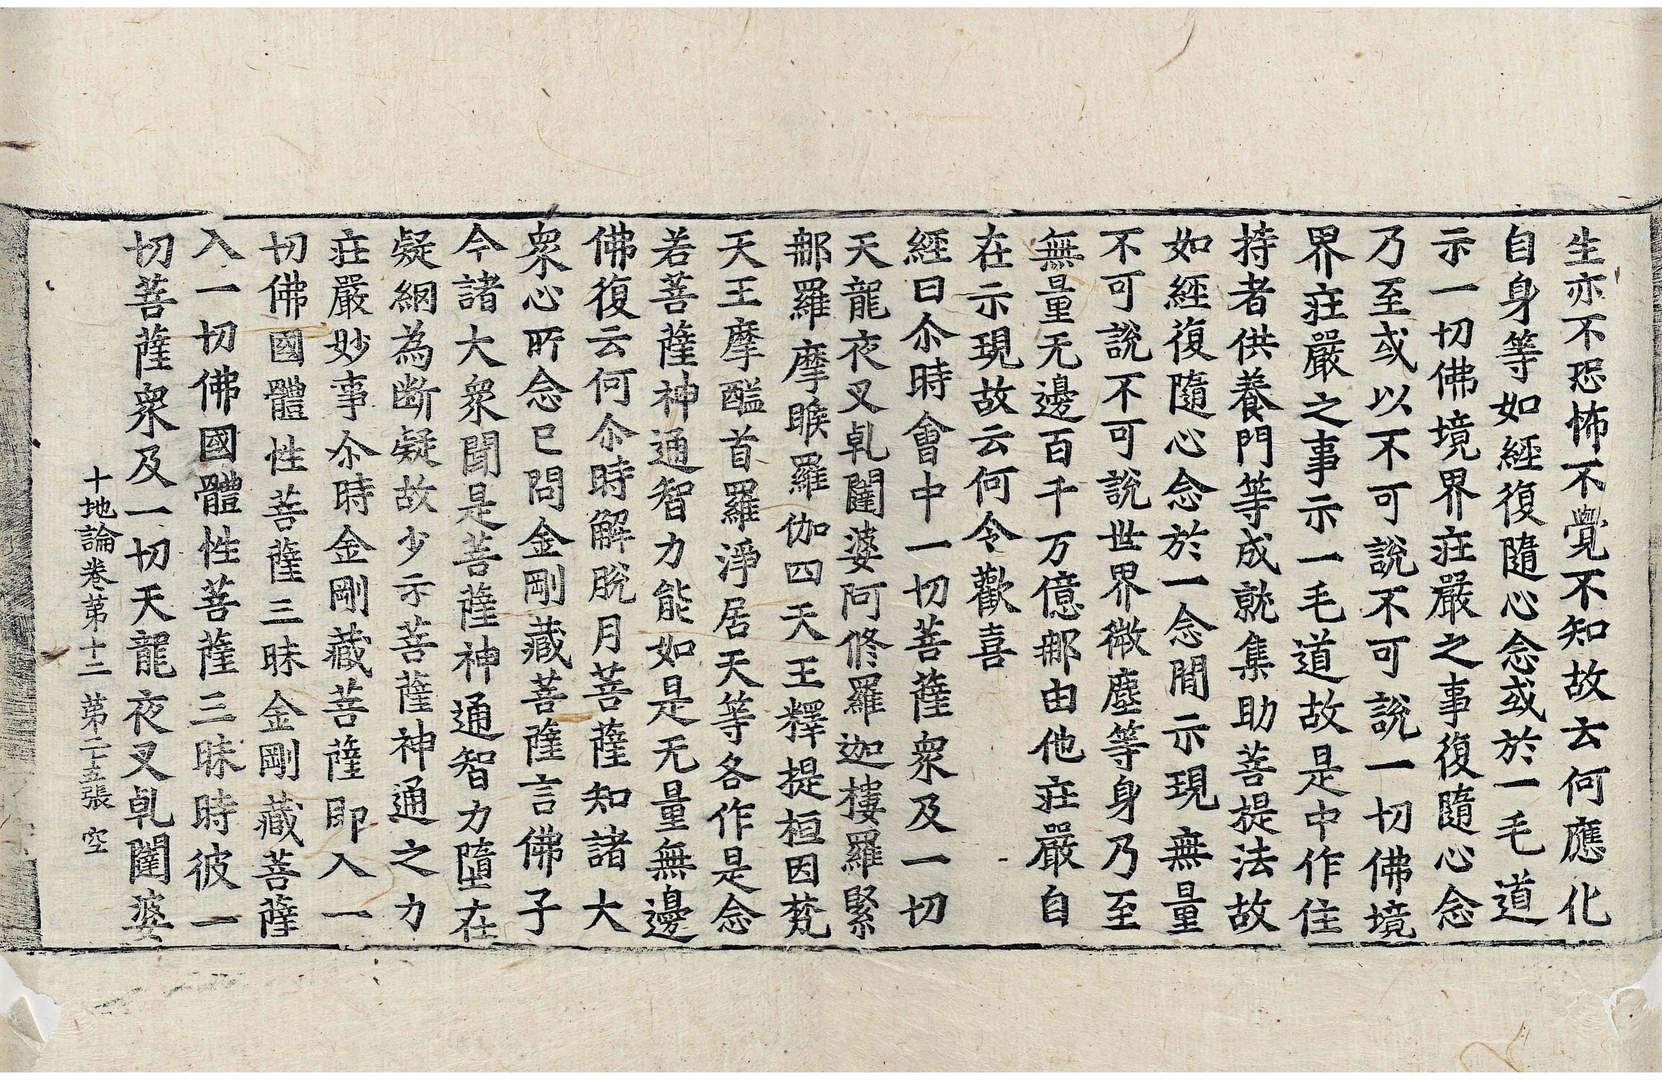 生亦不恐怖不覺不知故云何應化
自身等如經復隨心念或於一毛道
示一切佛境界莊嚴之事復隨心念
乃至或以不可說不可說一切佛境
界莊嚴之事示一毛道故是中作住
持者供養門等成就集助菩提法故
如經復隨心念於一念間示現無量
不可說不可說世界微塵等身乃至
無量无邊百千万億那由他莊嚴自
在示現故云何令歡喜
經曰尒時會中一切菩薩衆及一切
天龍夜叉乹闥婆阿修羅迦樓羅緊
那羅摩睺羅伽四天王釋提桓因梵
天王摩醯首羅淨居天等各作是念
若菩薩神通智力能如是无量無邊
佛復云何尒時解脫月菩薩知諸大
衆心所念已問金剛藏菩薩言佛子
今諸大衆聞是菩薩神通智力墮在
疑網為斷疑故少示菩薩神通之力
莊嚴妙事尒時金剛藏菩薩即入一
切佛國體性菩薩三昧金剛藏菩薩
入一切佛國體性菩薩三昧時彼一
切菩薩衆及一切天龍夜叉乹闥婆
十地論卷第十二 第二十五張 空